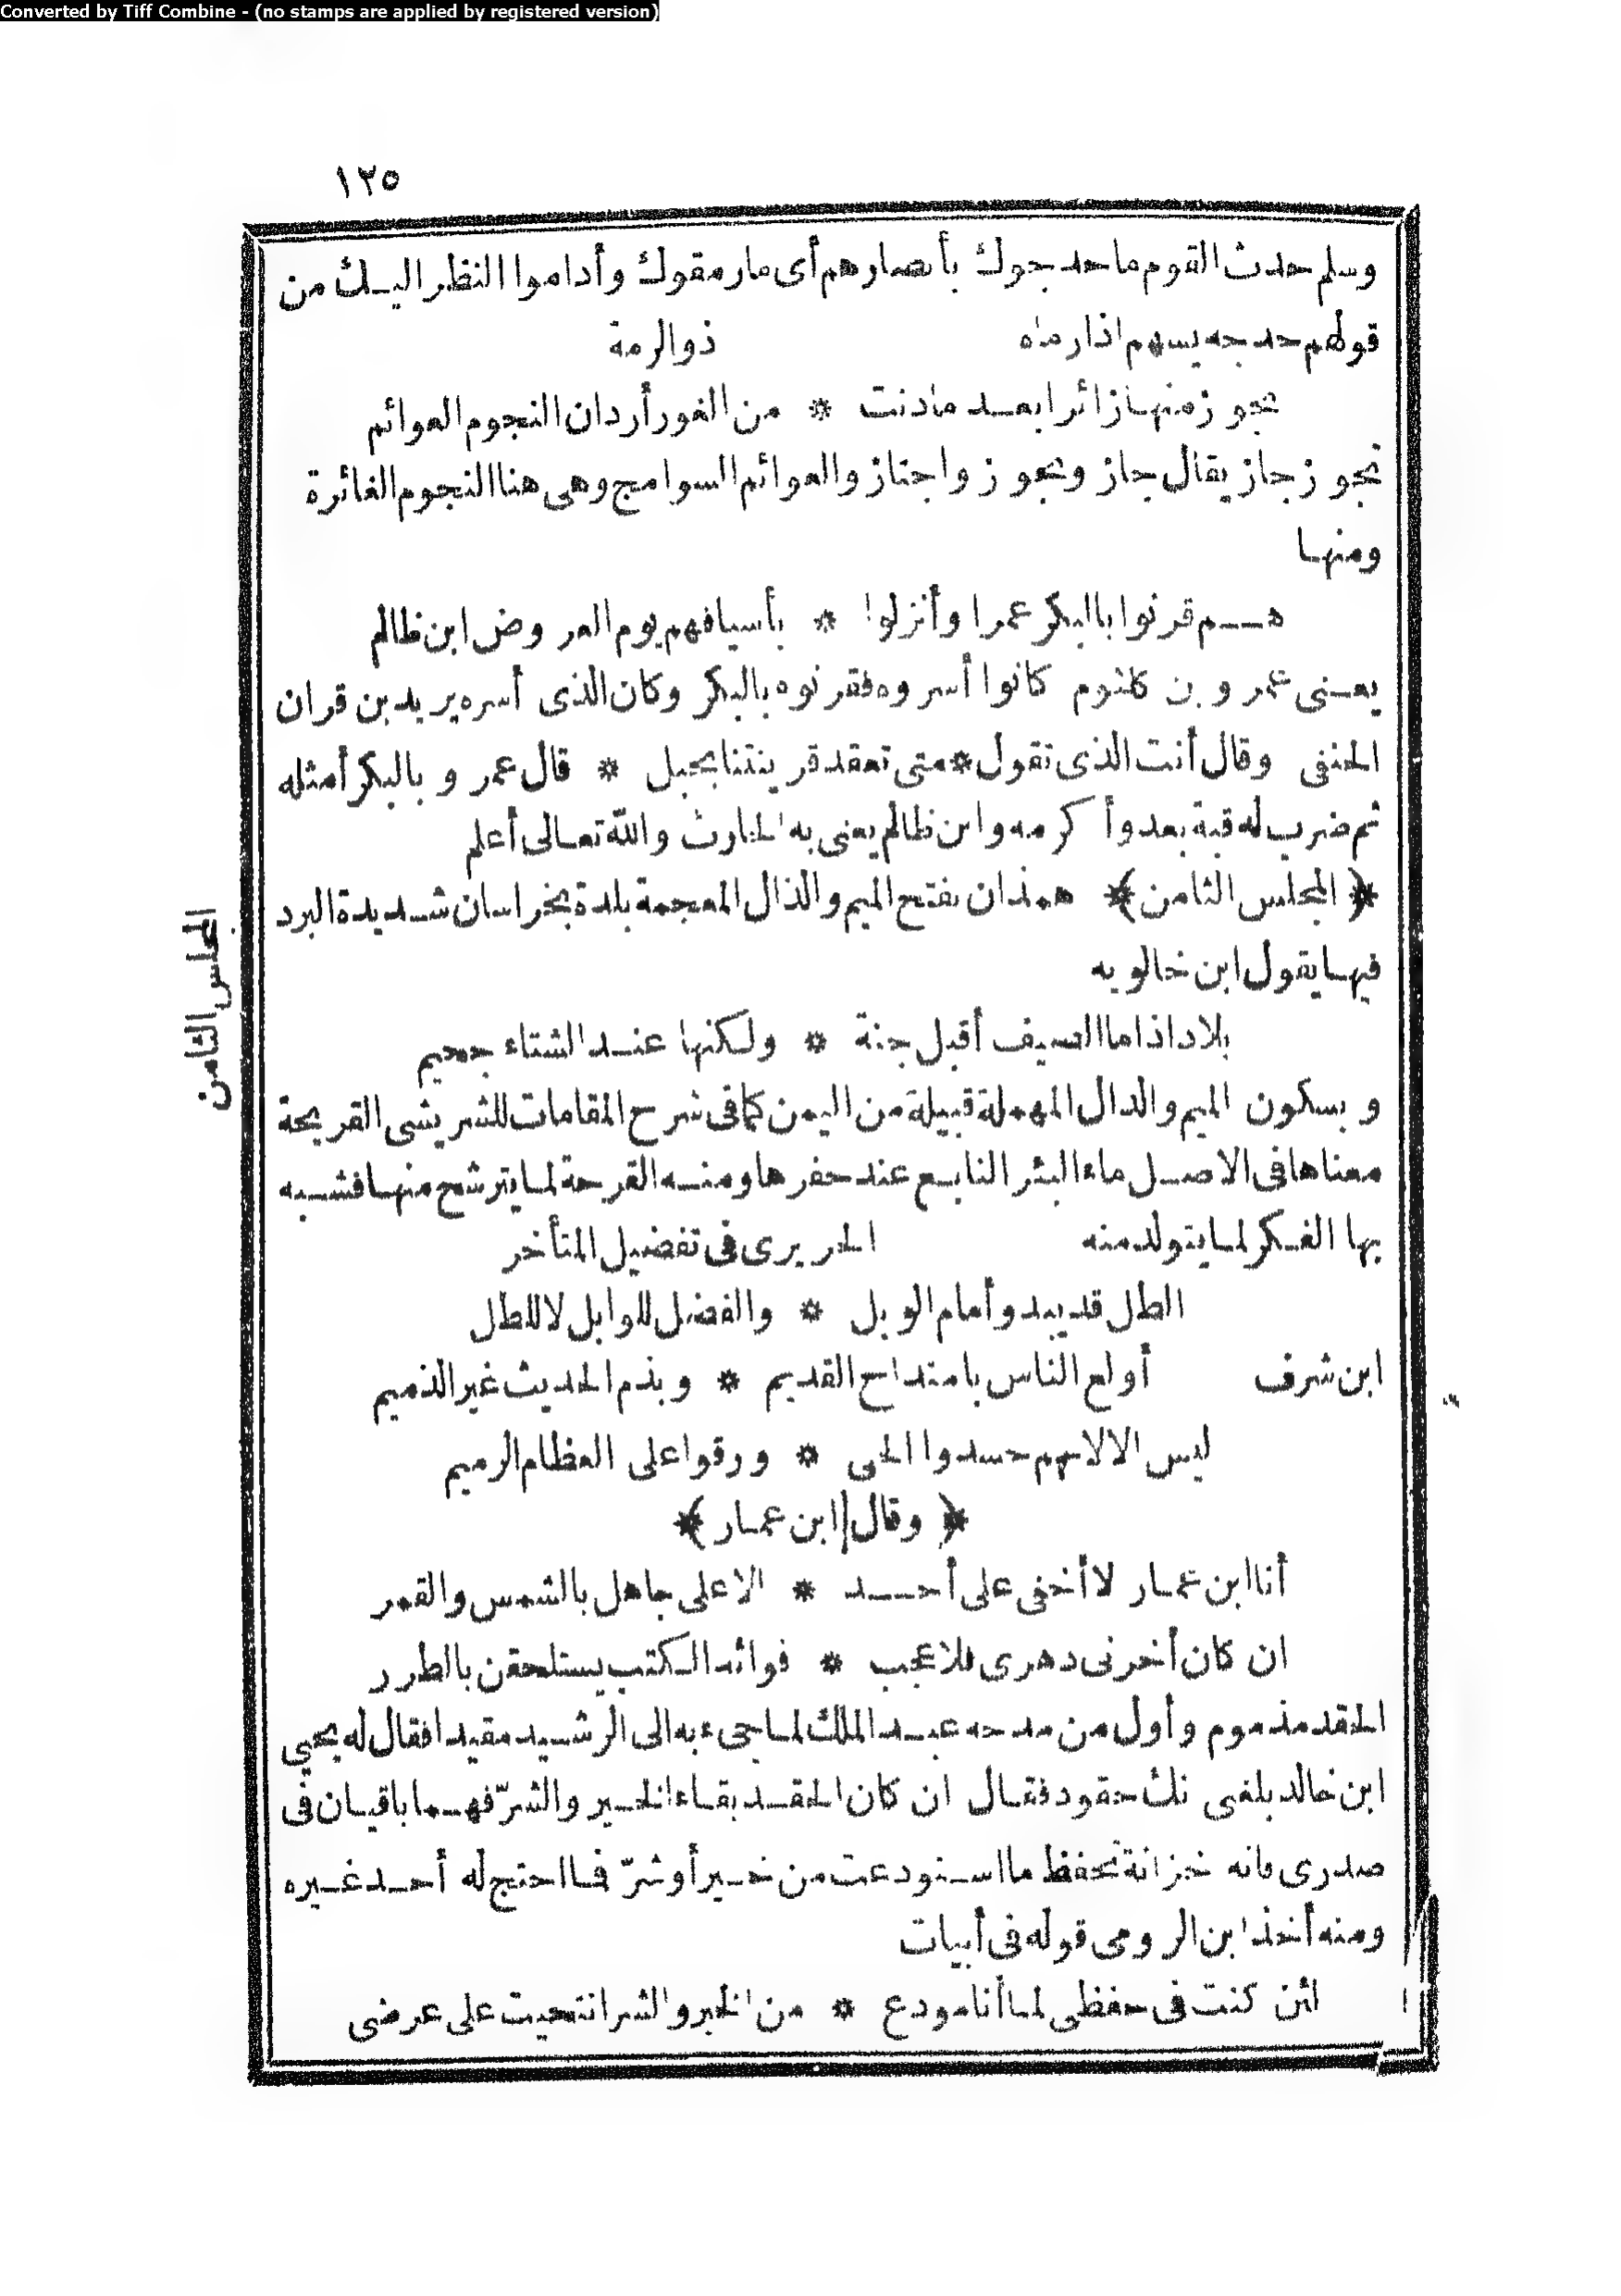 Converted by Tiff Combine - (no stamps are applied by registered version)
١٢٥
وسلم حدث القوم ما حدجوك بأبصارهم أى مارمقوك وأداموا النظر اليك من
قولهم حدجه بسهم اذا رماه ذو الرمة
تجوز منها زائرا بعد مادنت * من الغور أردان النجوم العوائم
تجوز جاز يقال جاز وتجوز واجتاز والعوائم السوامج وهى هنا النجوم الغائرة
ومنها
هم قرنوا بالبكر عمرا وأنزلوا * بأسيافهم يوم العروض ابن ظالم
يعنى عمرو بن كلثوم كانوا أسروه فقرنوه بالبكر وكان الذى أسره يريد بن قران
الحنفى وقال أنت الذى تقول * متى تعقد قرينتنا بحبل * قال عمرو بالبكر أمثله
ثم ضرب له قبة بعد وأكرمه وابن ظالم يعنى به الحارث والله تعالى أعلم
﴿المجلس الثامن﴾ همذان بفتح الميم والذال المعجمة بلدة بخراسان شديدة البرد
فيها يقول ابن خالويه
بلاد اذا ما الصيف أقبل جنة * ولكنها عند الشتاء جحيم
وبسكون الميم والدال المهملة قبيلة من اليمن كما فى شرح المقامات للشريشى القريحة
معناها فى الاصل ماء البئر النابع عند حفرها ومنه القرحة لما يترشح منها فشبه
بها الفكر لما يتولد منه الحريرى فى تفضيل المتأخر
الطل قد يبدو أمام الوبل * والفضل للوابل لا للطل
ابن شرف أولع الناس بامتداح القديم * وبذم الحديث غير الذميم
ليس الا لانهم حسدوا الحى * ورقوا على العظام الرميم
﴿وقال ابن عمار﴾
أنا ابن عمار لا أخفى على أحد * الا على جاهل بالشمس والقمر
ان كان أخرنى دهرى فلا عجب * فوائد الكتب يستلحقن بالطرر
الحقد مذموم وأول من مدحه عبد الملك لما جىء به الى الرشيد مقيدا فقال له يحيى
ابن خالد بلغنى نك حقود فقال ان كان الحقد بقاء الخير والشر فهما باقيان فى
صدرى فانه خزانة تحفظ ما استودعت من خير أو شر فما احتج له أحد غيره
ومنه أخذ ابن الرومى قوله فى أبيات
لئن كنت فى حفظى لما أنا مودع * من الخير والشر انتحيت على عرضى
المجلس الثامن